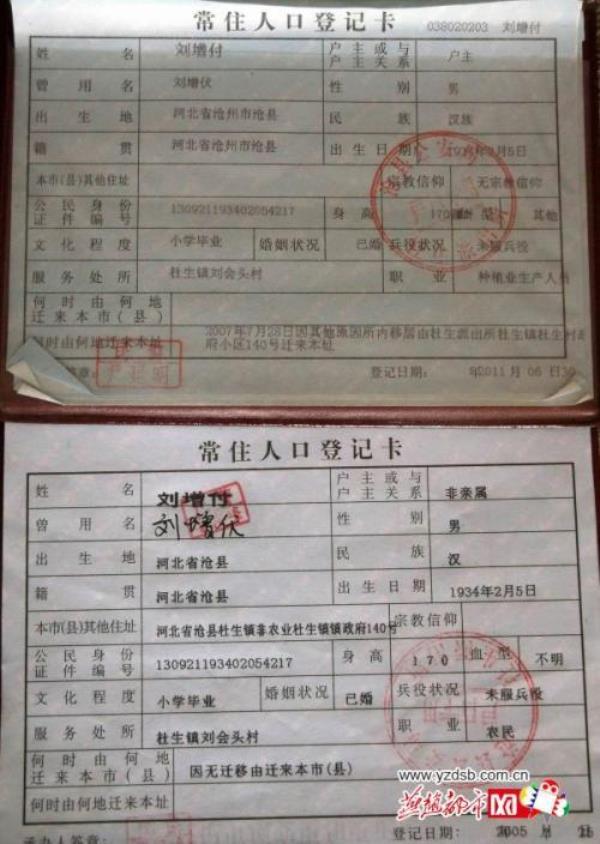 常住人口登记卡
038020203 刘增付
姓名 刘增付 户主或与户主关系 户主
曾用名 刘增伏 性别 男
出生地 河北省沧州市沧县 民族 汉族
籍贯 河北省沧州市沧县 出生日期 1934年2月5日
本市(县)其他住址 宗教信仰 无宗教信仰
公民身份证件编号 130921193402054217 身高 170 血型 其他
文化程度 小学毕业 婚姻状况 已婚 兵役状况 未服兵役
服务处所 杜生镇刘会头村 职业 种植业生产人员
何时由何地迁来本市(县)
何时由何地迁来本址 2007年7月28日因其他原因所内移居由杜生派出所杜生镇杜生村
府小区140号迁来本址
登记日期: 2011 月 06 日30
常住人口登记卡
姓名 刘增付 户主或与户主关系 非亲属
曾用名 刘增伏 性别 男
出生地 河北省沧县 民族 汉
籍贯 河北省沧县 出生日期 1934年2月5日
本市(县)其他住址 河北省沧县杜生镇非农业杜生镇镇政府140号 宗教信仰
公民身份证件编号 130921193402054217 身高 170 血型 不明
文化程度 小学毕业 婚姻状况 已婚 兵役状况 未服兵役
服务处所 杜生镇刘会头村 职业 农民
何时由何地迁来本市(县) 因无迁移由迁来本市(县)
何时由何地迁来本址
www.yzdsb.com.cn
燕赵都市网
承办人签章: 登记日期: 2005